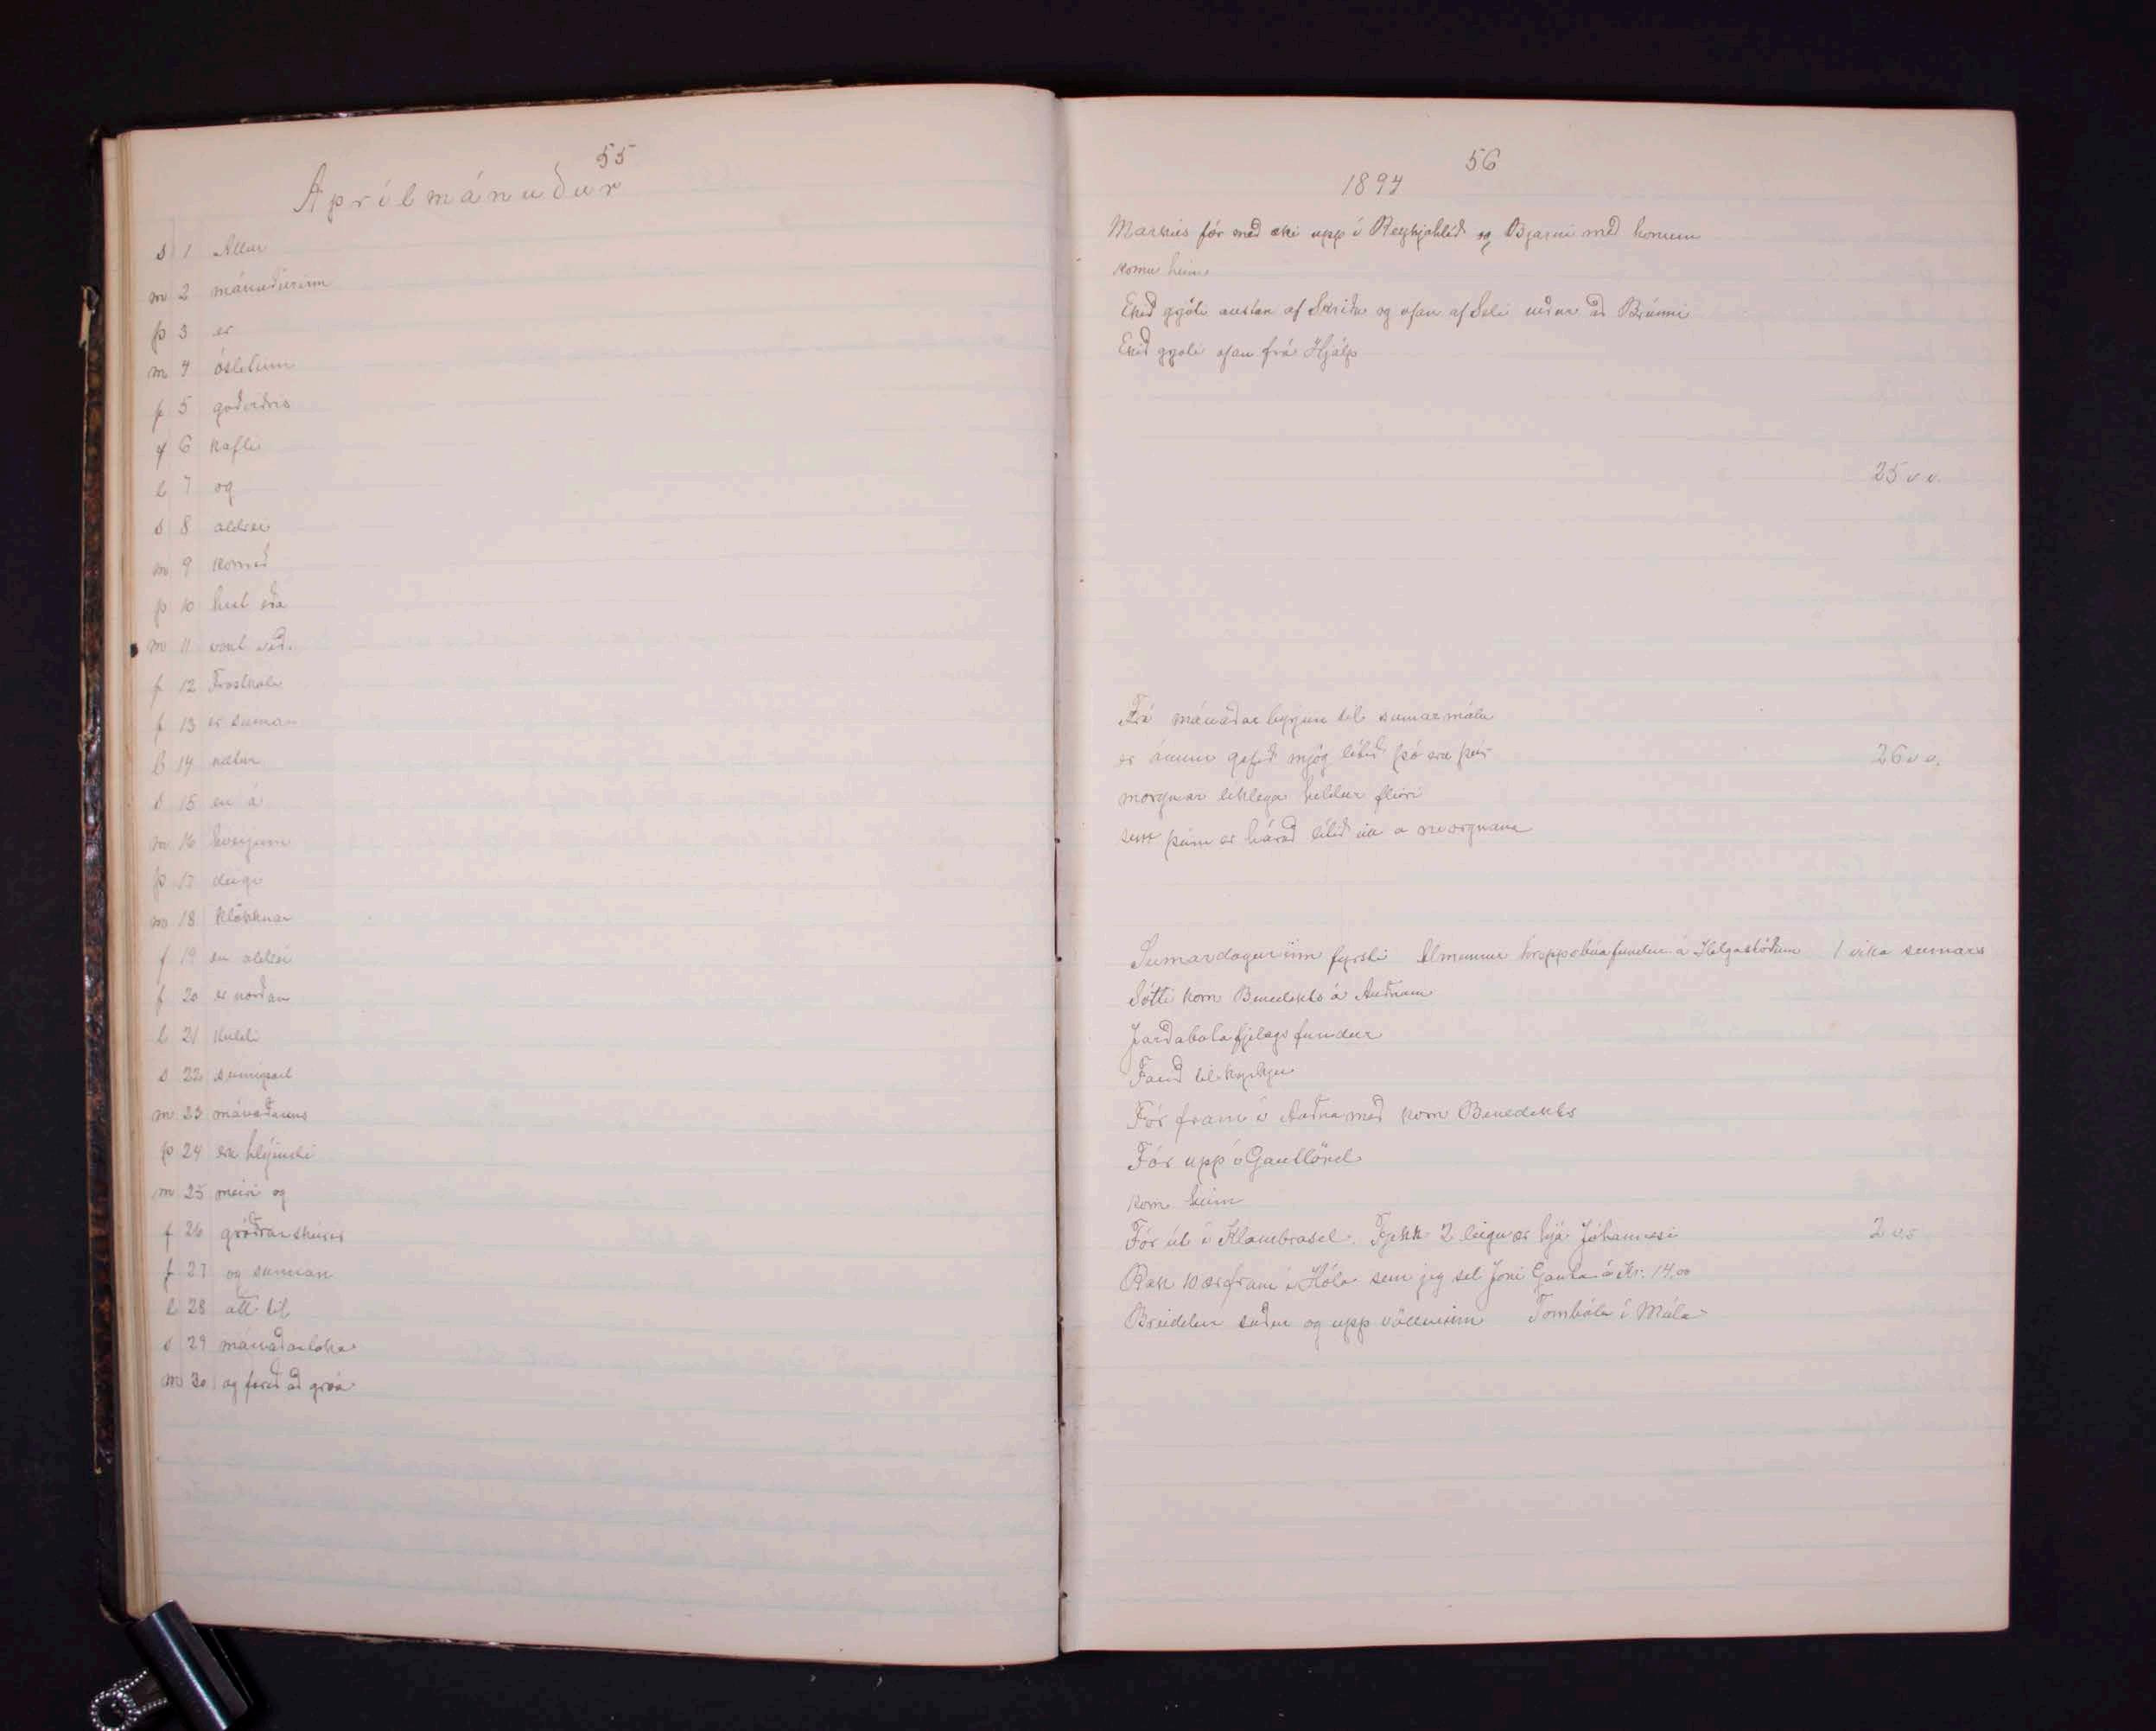 55
Aprílmánuður
s 1 Allur
m 2 mánuðurinn
þ 3 er
m 4 óslitinn
f 5 góðviðris
f 6 kafli
l 7 og
s 8 aldrei
m 9 komið
þ 10 hret eða
m 11 vont veð.
f 12 Frostkala
f 13 er suma
l 14 nætur
s 15 en á
m 16 hverjum
þ 17 degi
m 18 klökknar
f 19 en aldrei
f 20 er norðan
l 21 kuldi
s 22 seinnipart
m 23 mánaðarins
þ 24 eru hlýindi
m 25 meiri og
f 26 gróðrarskúrir
f 27 og sunnan
l 28 átt til
s 29 mánaðarloka
m 30 og farið að gróa
56
1894
Markús fór með æki upp í Reykjahlíð og Bjarni með honum
komu heim
Ekið grjóti austan af Skriðu og ofan af Seli niður að Brúnni
Ekið grjóti ofan frá Hjálp
25 v v.
Frá mánaðar byrjun til sumarmála
er ánum gefið mjög lítið þó eru þeir
26 v v.
morgnar líklega heldur fleiri
sem þeim er hárað lítið eitt á morgnana
Sumardagurinn fyrsti Almennur hreppsbúafundur á Helgastöðum 1 vika sumars
Sótti korn Benedikts á Auðnum
Jarðabótafjelagsfundur
Farið til kyrkju
Fór fram í Auðna með korn Benedikts
Fór upp í Gautlönd
kom heim
Fór út í Klambrasel. Fjekk 2 leigu ær hjá Jóhannesi
2 v s
Rak 10 ær fram í Hóla sem jeg sel Jóni Gauta á Kr. 14,00
Breiddur suður og upp völlurinn Tombóla í Múla